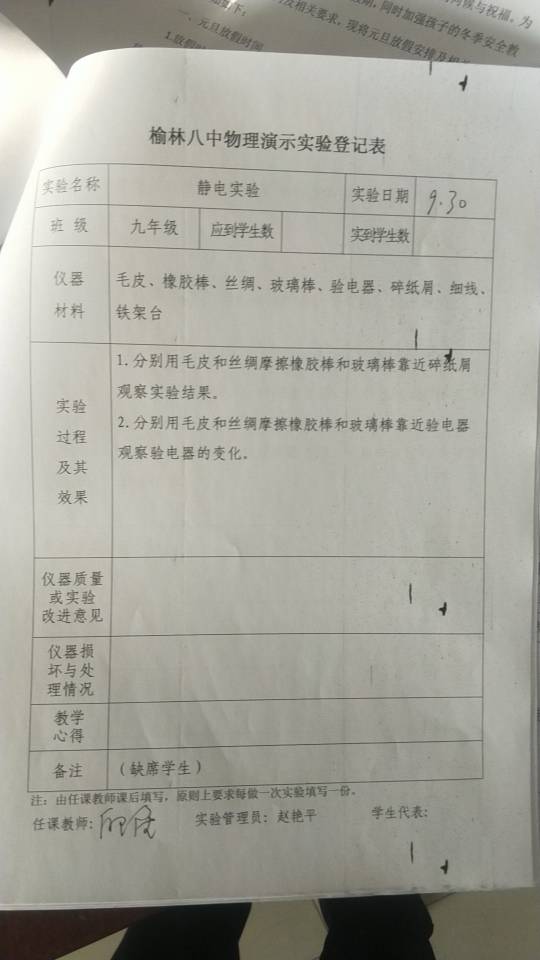 一、元旦放假时间
榆林八中物理演示实验登记表
实验名称 静电实验 实验日期 9.30
班 级 九年级 应到学生数 实到学生数
仪器
材料
毛皮、橡胶棒、丝绸、玻璃棒、验电器、碎纸屑、细线、
铁架台
实验
过程
及其
效果
1.分别用毛皮和丝绸摩擦橡胶棒和玻璃棒靠近碎纸屑
观察实验结果。
2.分别用毛皮和丝绸摩擦橡胶棒和玻璃棒靠近验电器
观察验电器的变化。
仪器质量
或实验
改进意见
仪器损
坏与处
理情况
教学
心得
备注 （缺席学生）
注：由任课教师课后填写，原则上要求每做一次实验填写一份。
任课教师： 实验管理员：赵艳平 学生代表：